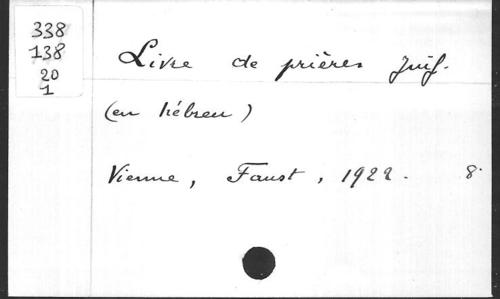 338
138
20
1
Livre de prières juif.
(en hébreu)
Vienne, Faust, 1922. 8°